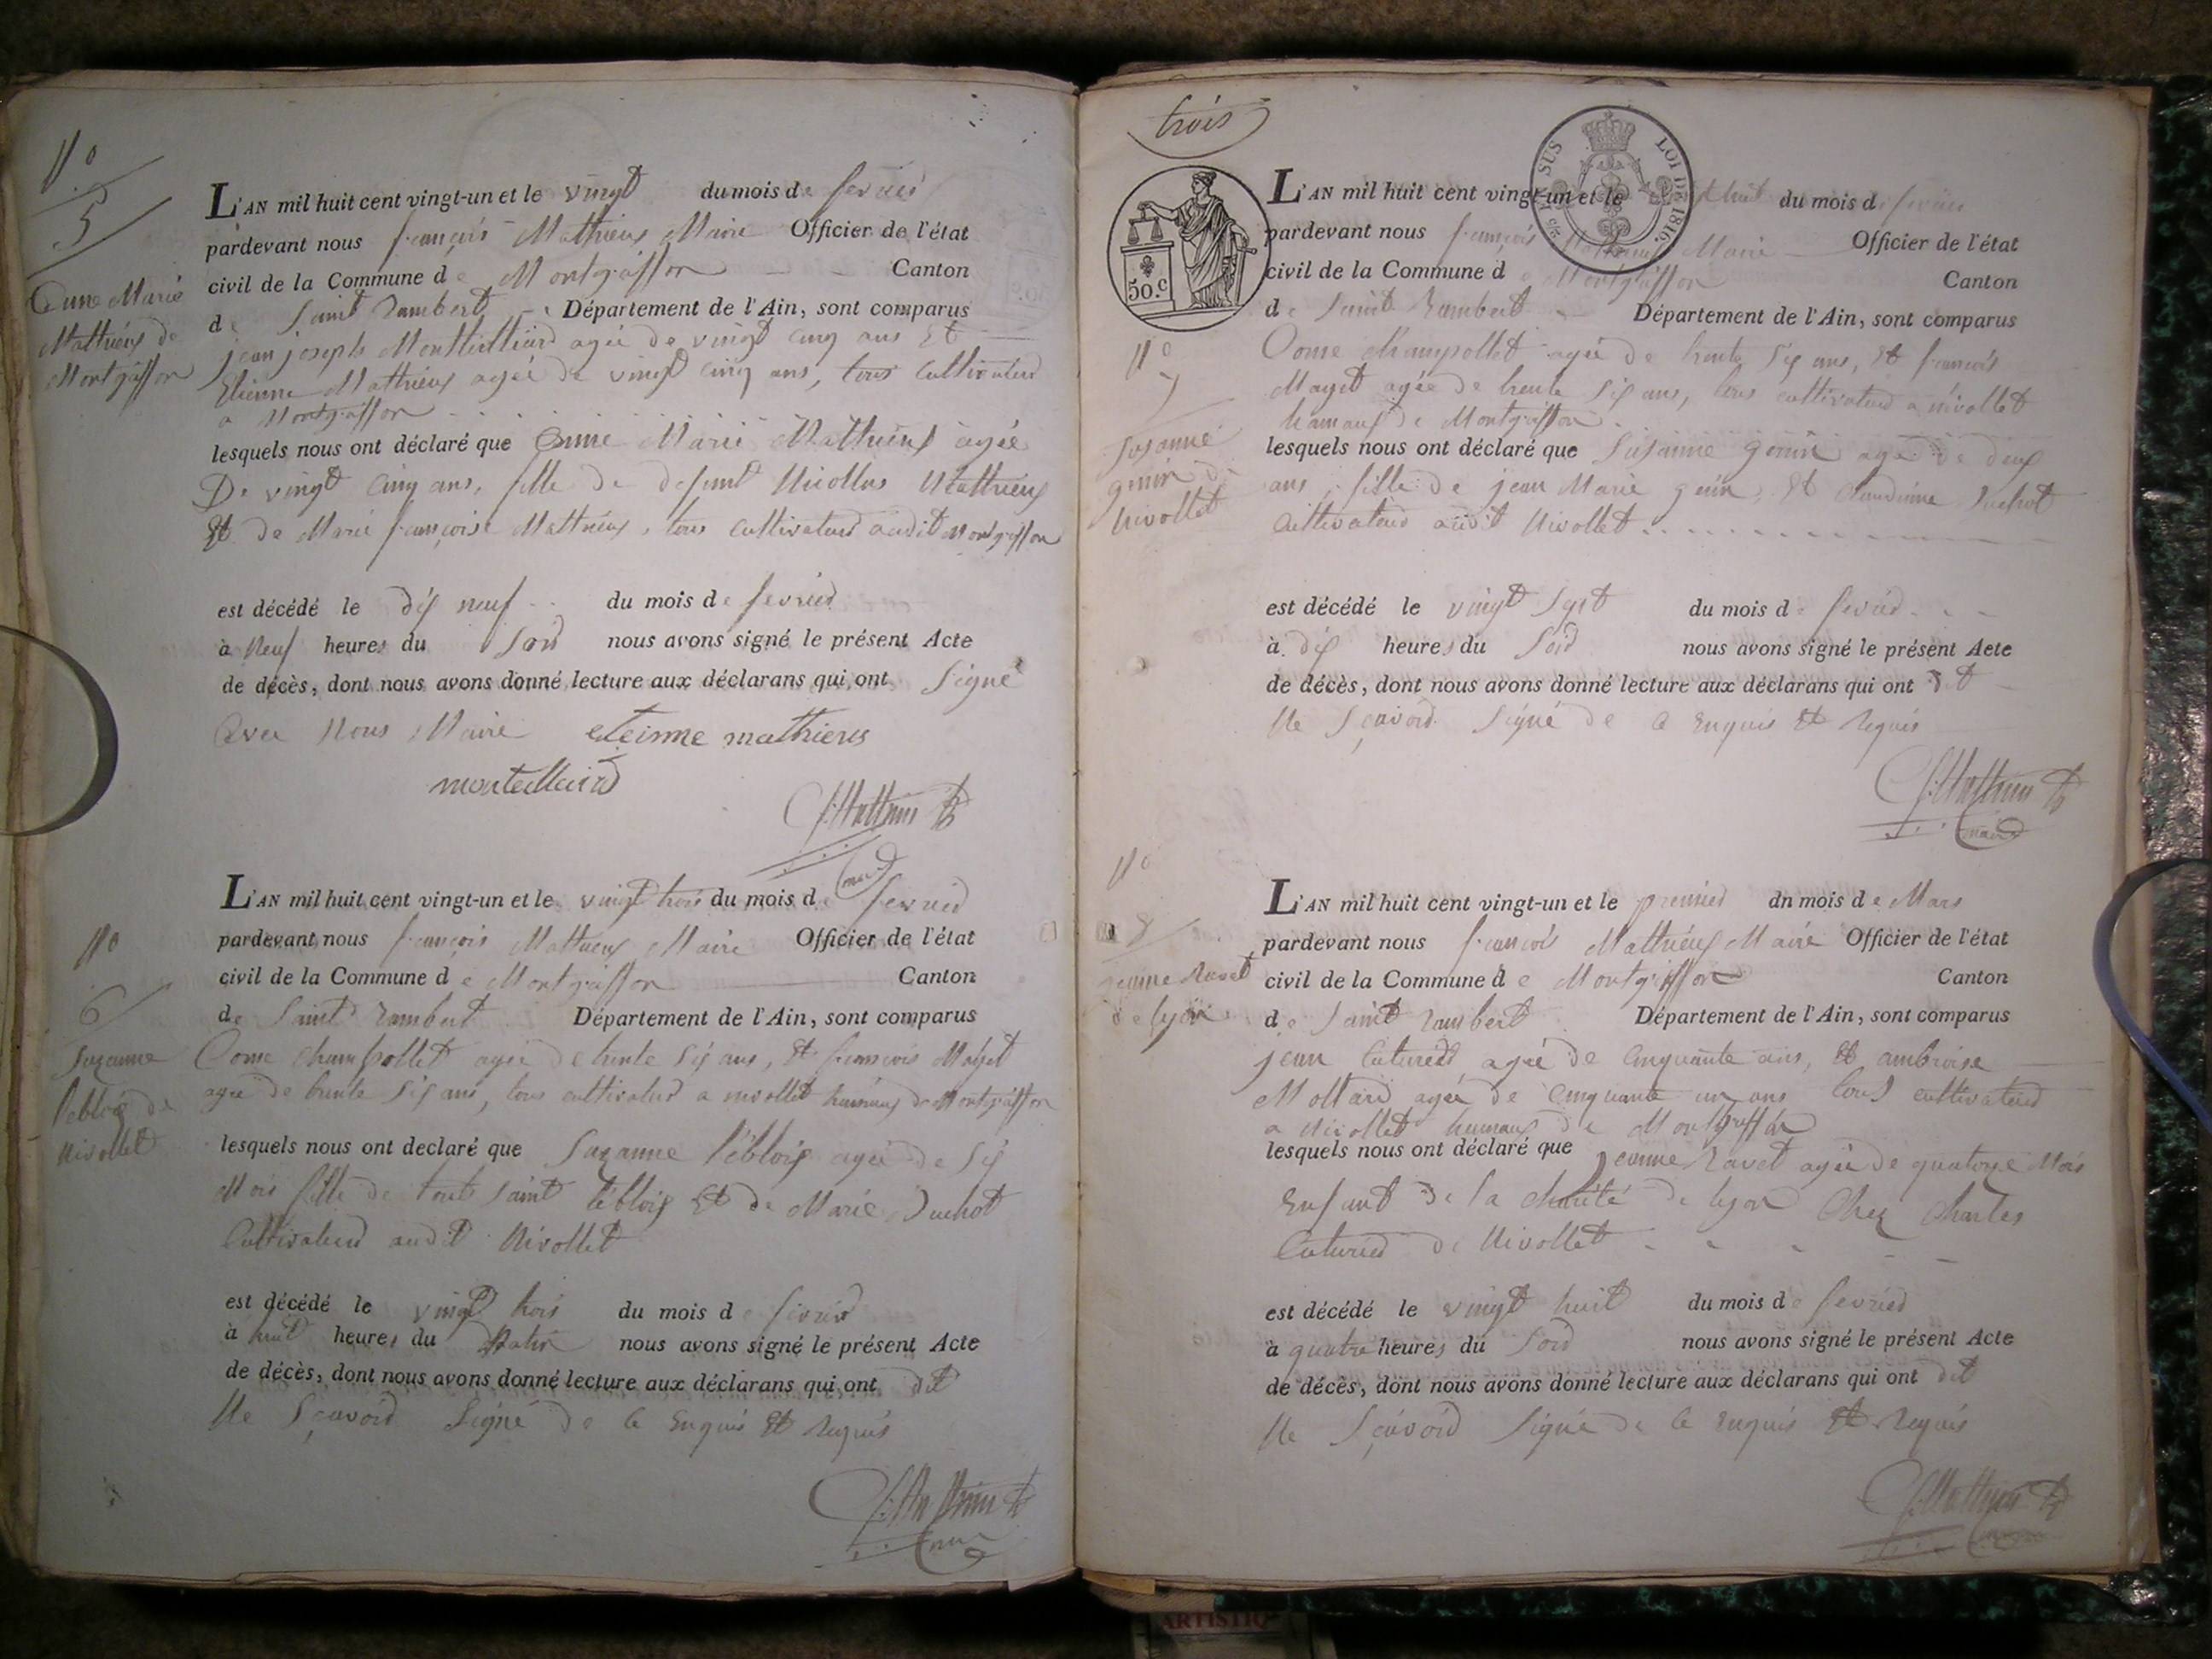 N°
5
Anne Marie
Mathieux de
Montgriffon
L'AN mil huit cent vingt-un et le vingt du mois de fevrier
pardevant nous françois Mathieux Maire Officier de l'état
civil de la Commune de Montgriffon Canton
de Saint Rambert Département de l'Ain, sont comparus
jean joseph Montlielliard agée de vingt cinq ans Et
Etienne Mathieux agée de vingt cinq ans, tous Cultivateurs
a Montgriffon
lesquels nous ont déclaré que Anne Marie Mathieux agée
De vingt Cinq ans, fille de defunt Nicollas Mathieux
Et de Marie françoise Mathieux, tous cultivateurs audit Montgriffon
est décédé le dix neuf du mois de fevrier
à Neuf heures du Soir nous avons signé le présent Acte
de décès, dont nous avons donné lecture aux déclarans qui ont Signé
Avec Nous Maire eteinne mathieus
monteilleird
f. Mathieux
maire
N°
6
Suzanne
Lebloix de
Nivollet
L'AN mil huit cent vingt-un et le vingt trois du mois de fevrier
pardevant nous françois Mathieux Maire Officier de l'état
civil de la Commune de Montgriffon Canton
de Saint Rambert Département de l'Ain, sont comparus
Come Champollet agée de trente Six ans, Et francois Maget
agée de trente Six ans, tous cultivateurs a nivollet hameaux de Montgriffon
lesquels nous ont declaré que Suzanne Léblois agée de Six
Mois fille de touts Saint Léblois Et de Marie Juchot
Cultivateurs audit Nivollet
est décédé le vingt trois du mois de fevrier
à huit heures du Matin nous avons signé le présent Acte
de décès, dont nous avons donné lecture aux déclarans qui ont dit
Ne Sçavoir Signé de Ce Enquis Et Requis
f. Mathieux
maire
trois
EN SUS LOI DE 1816.
50.c
N°
7
Susanne
genin de
Nivollet
L'AN mil huit cent vingt-un et le huit du mois de fevrier
pardevant nous françois Mathieux Maire Officier de l'état
civil de la Commune de Montgriffon Canton
de Saint Rambert Département de l'Ain, sont comparus
Come Champollet agée de trente Six ans, Et francois
Maget agée de trente Six ans, tous cultivateurs a nivollet
hameaux de Montgriffon
lesquels nous ont déclaré que Susanne genin agé de deux
ans, fille de jean Marie genin, Et Claudinne Juchot
Cultivateurs audit Nivollet
est décédé le vingt Sept du mois de fevrier
à dix heures du Soir nous avons signé le présent Aete
de décès, dont nous avons donné lecture aux déclarans qui ont dit
Ne Sçavoir Signé de Ce Enquis Et Requis
f. Mathieux
maire
N°
8
jeanne Ravet
de lyon
L'AN mil huit cent vingt-un et le premier dn mois de Mars
pardevant nous francois Mathieux Maire Officier de l'état
civil de la Commune de Montgriffon Canton
de Saint Rambert Département de l'Ain, sont comparus
jean Cuturier agée de Cinquante ans, Et ambroise
Mollard agée de Cinquante un ans tous cultivateurs
a Nivollet hameaux de Montgriffon
lesquels nous ont déclaré que jeanne Ravet agée de quatorze Mois
Enfant de la charité de lyon Chez Charles
Cuturier de Nivollet
est décédé le vingt huit du mois de fevrier
à quatre heures du Soir nous avons signé le présent Acte
de décès, dont nous avons donné lecture aux déclarans qui ont dit
Ne Sçavoir Signé de Ce Enquis Et Requis
f. Mathieux
maire
ARTISTIQ